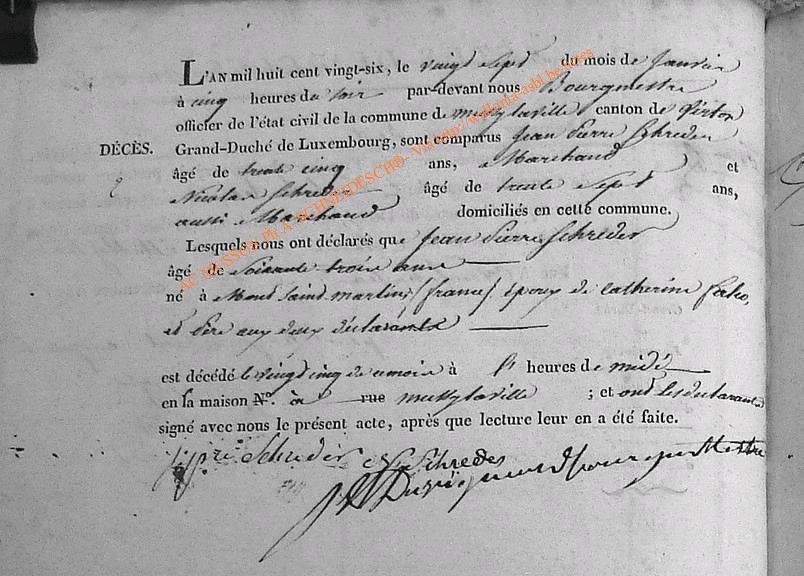 L'AN mil huit cent vingt-six, le vingt sept du mois de Janvier
à cinq heures du soir par-devant nous Bourgmestre
officier de l'état civil de la commune de mussy la ville canton de Virton
DÉCÈS. Grand-Duché de Luxembourg, sont comparus Jean Pierre Schreder
âgé de trente cinq ans, Marchand et
Nicolas Schreder âgé de trente sept ans,
aussi Marchand domiciliés en cette commune.
Lesquels nous ont déclarés que Jean Pierre Schreder
âgé de Soixante trois ans
né à Mont Saint martin (france) Epoux de Catherine
et Père aux deux déclarants
est décédé le vingt cinq de ce mois à heures de midi
en la maison Nº. à rue mussy la ville ; et ont les déclarants
signé avec nous le présent acte, après que lecture leur en a été faite.
Schreder Schreder
Bourgmestre